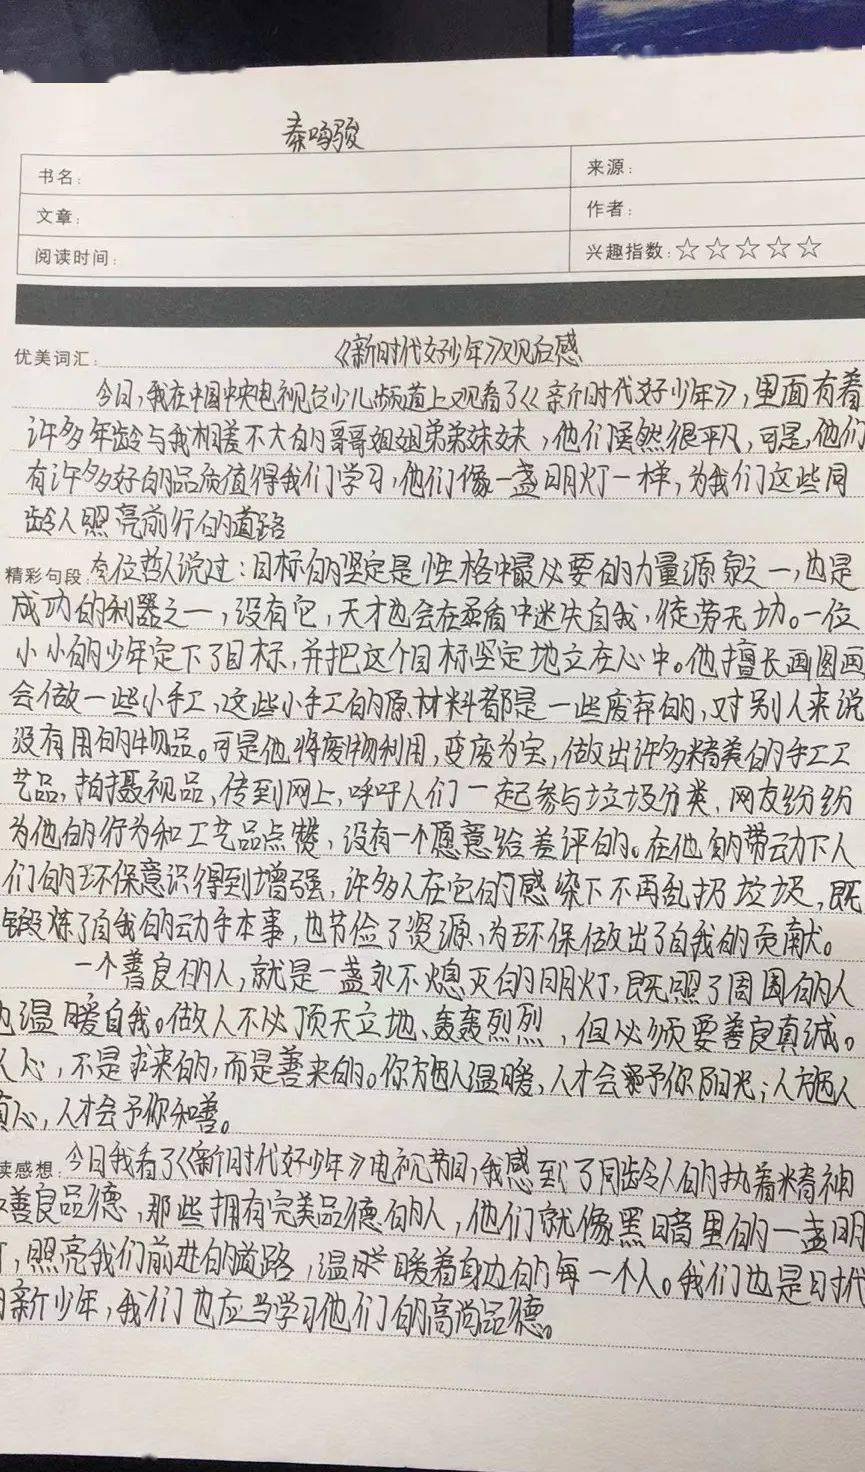 秦鸣骏
书名：
来源：
文章：
作者：
阅读时间：
兴趣指数：☆☆☆☆☆
优美词汇：
《新时代好少年》观后感
今日，我在中国中央电视台少儿频道上观看了《新时代好少年》，里面有着
许多年龄与我相差不大的哥哥姐姐弟弟妹妹，他们虽然很平凡，可是，他们
有许多好的品质值得我们学习，他们像一盏明灯一样，为我们这些同
龄人照亮前行的道路
精彩句段：
有位哲人说过：目标的坚定是性格中最必要的力量源泉之一，也是
成功的利器之一，没有它，天才也会在矛盾中迷失自我，徒劳无功。一位
小小的少年定下了目标，并把这个目标坚定地立在心中。他擅长画图画
会做一些小手工，这些小手工的原材料都是一些废弃的，对别人来说
没有用的物品。可是他将废物利用，变废为宝，做出许多精美的手工工
艺品，拍摄视品，传到网上，呼吁人们一起参与垃圾分类，网友纷纷
为他的行为和工艺品点赞，没有一个愿意给差评的。在他的带动下人
们的环保意识得到增强，许多人在它的感染下不再乱扔垃圾，既
锻炼了自我的动手本事，也节俭了资源，为环保做出了自我的贡献。
一个善良的人，就是一盏永不熄灭的明灯，既照了周围的人
也温暖自我。做人不必顶天立地、轰轰烈烈，但必须要善良真诚。
人心，不是求来的，而是善来的。你方施人温暖，人才会予你阳光；人施人
真心，人才会予你和善。
读感想：
今日我看了《新时代好少年》电视节目，我感到了同龄人的执着精神
善良品德，那些拥有完美品德的人，他们就像黑暗里的一盏明
灯，照亮我们前进的道路，温暖着身边的每一个人。我们也是时代
的新少年，我们也应当学习他们的高尚品德。